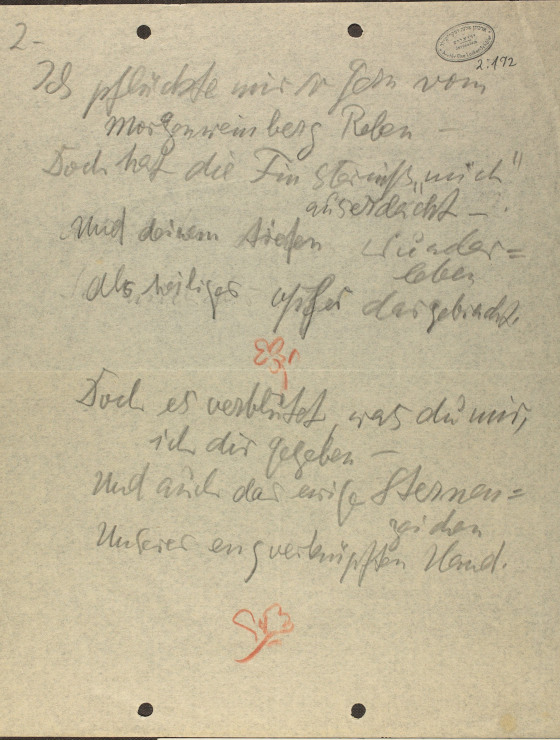 2-
2:192
Ich pflückte mir so gern vom
Morgenweinberg Reben —
Doch hat die Finsterniß „mich"
auserdacht —.
Und deinem tiefen Wunder=
leben
Als heiliges Opfer dargebracht.
Doch es verblutet, was du mir,
ich dir gegeben —
Und auch das ewige Sternen=
zeichen
Unserer engverknüpften Hand.